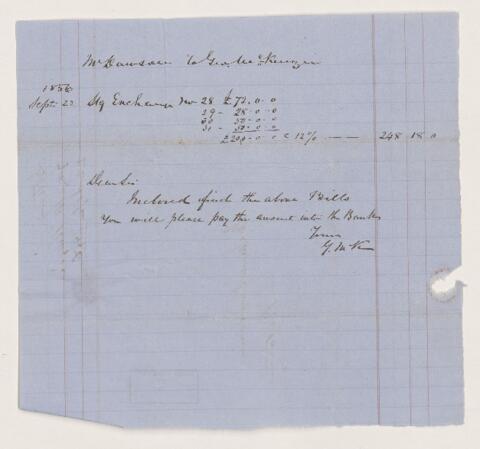 Mr Dawson to Geo. McKenzie
1856
Sept. 23 Stg Exchange No 28 £72.0.0
29 - 28.0.0
30 50.0.0
31 - 50.0.0
£200.0.0 @ 12% — — 248 18 0
Dear Sir
Inclosed find the above Bills
You will please pay the amount into the Bank
Yours
G. McK